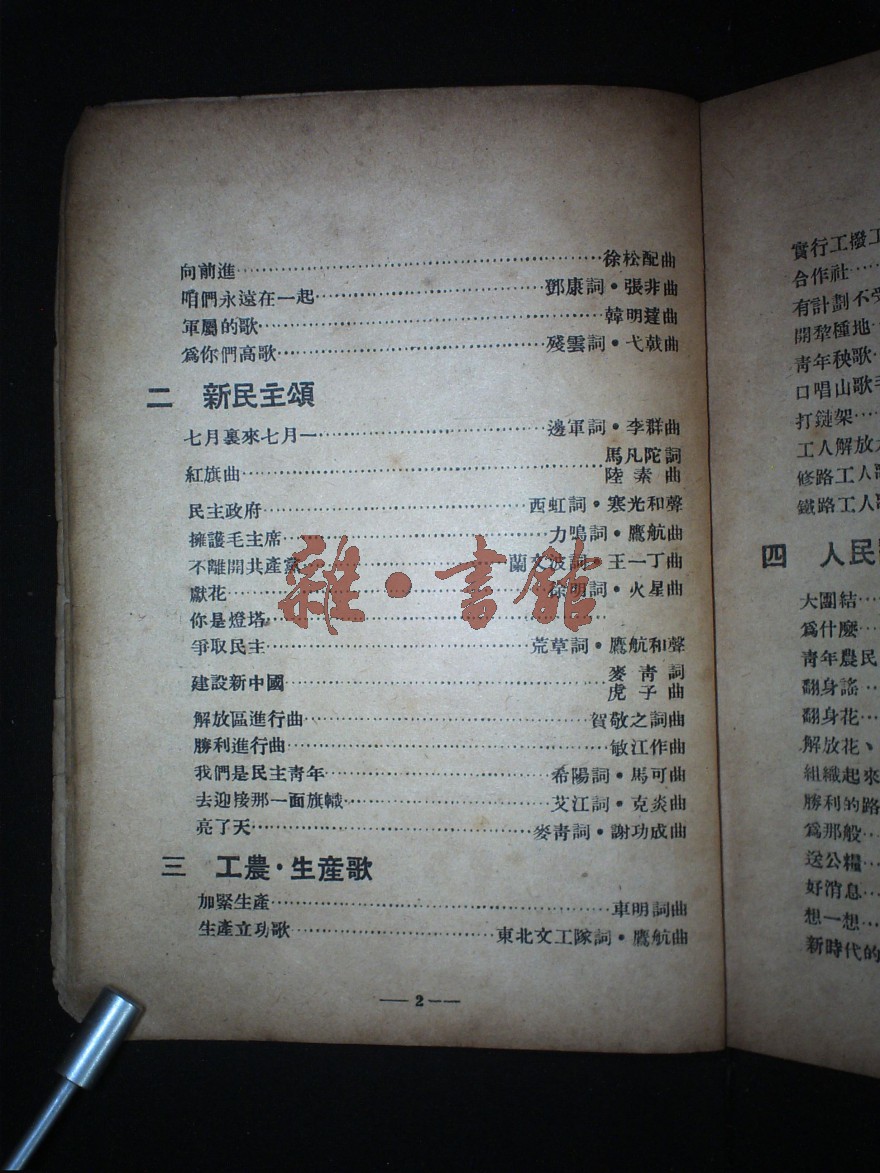 向前進……徐松配曲
咱們永遠在一起……鄧康詞·張非曲
軍屬的歌……韓明達曲
爲你們高歌……殘雲詞·弋戟曲
二　新民主頌
七月裏來七月一……邊軍詞·李群曲
紅旗曲……馬凡陀詞
陸素曲
民主政府……西虹詞·寒光和聲
擁護毛主席……力鳴詞·鷹航曲
不離開共產黨……蘭文波詞·王一丁曲
獻花……徐明詞·火星曲
你是燈塔……
爭取民主……荒草詞·鷹航和聲
建設新中國……麥青詞
虎子曲
解放區進行曲……賀敬之詞曲
勝利進行曲……敏江作曲
我們是民主青年……希陽詞·馬可曲
去迎接那一面旗幟……艾江詞·克炎曲
亮了天……麥青詞·謝功成曲
三　工農·生產歌
加緊生產……車明詞曲
生產立功歌……東北文工隊詞·鷹航曲
—2—
雜·書館
實行工撥工
合作社……
有計劃不受
開犂種地
青年秧歌
口唱山歌手
打鏈架……
工人解放
修路工人
鐵路工人歌
四　人民
大團結……
爲什麼……
青年農民
翻身謠……
翻身花……
解放花、
組織起來
勝利的路
爲那般……
送公糧……
好消息……
想一想……
新時代的